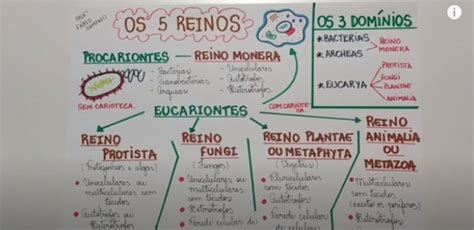 PROFº
FABIO
OS 5 REINOS
OS 3 DOMÍNIOS
* BACTÉRIAS
* ARCHEAS
REINO
MONERA
* EUCARYA
PROTISTA
FUNGI
PLANTAE
ANIMALIA
PROCARIONTES
REINO MONERA
- Bactérias
- Cianobactérias
- Arqueas
- Unicelulares
- Autótrofos
- Heterótrofos
SEM CARIOTECA
EUCARIONTES
COM CARIOTECA
REINO
PROTISTA
(Protozoários e algas)
- Unicelulares ou
multicelulares
sem tecidos
- Autótrofos ou
REINO
FUNGI
(Fungos)
- Unicelulares ou
multicelulares
sem tecidos
- Heterótrofos
- Parede celular
REINO PLANTAE
OU METAPHYTA
(Vegetais)
- Pluricelulares
com tecidos
- Autótrofos
- Parede celular de
REINO
ANIMALIA
OU
METAZOA
- Multicelulares
com tecidos
(exceto os poríferos)
- Heterótrofos